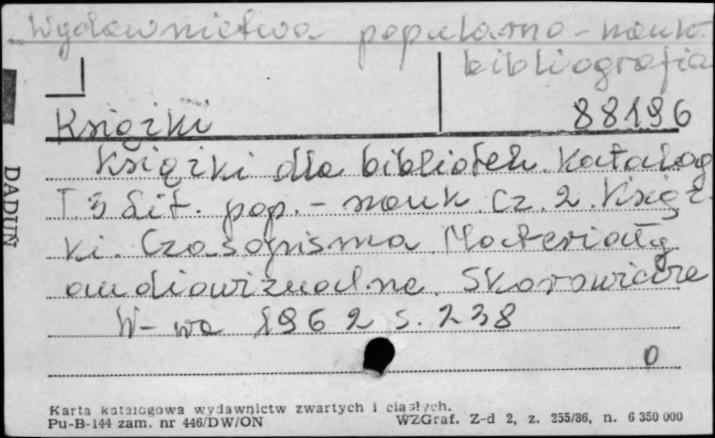 Wydawnictwa popularno-nauk.
bibliografia
Książki
88196
Książki dla bibliotek. Katalog
T 3 Lit. pop. - nauk. Cz. 2. Książ-
ki. Czasopisma Materiały
audiowizualne. Skorowidze
W-wa 1962 s. 238
0
DADUŃ
Karta katalogowa wydawnictw zwartych i ciągłych.
Pu-B-144 zam. nr 446/DW/ON WZGraf. Z-d 2, z. 255/86, n. 6 350 000